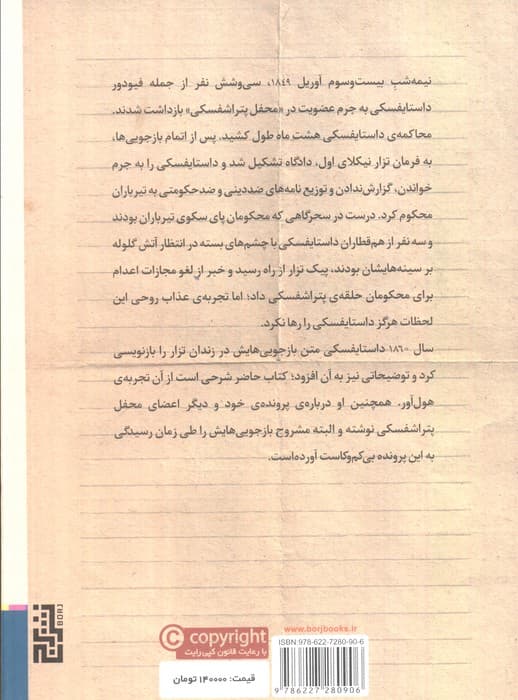 نیمه‌شبِ بیست‌وسوم آوریل ۱۸۴۹، سی‌وشش نفر از جمله فیودور
داستایفسکی به جرم عضویت در «محفل پتراشفسکی» بازداشت شدند.
محاکمه‌ی داستایفسکی هشت ماه طول کشید. پس از اتمام بازجویی‌ها،
به فرمان تزار نیکلای اول، دادگاه تشکیل شد و داستایفسکی را به جرم
خواندن، گزارش‌ندادن و توزیع نامه‌های ضددینی و ضدحکومتی به تیرباران
محکوم کرد. درست در سحرگاهی که محکومان پای سکوی تیرباران بودند
و سه نفر از هم‌قطاران داستایفسکی با چشم‌های بسته در انتظار آتش گلوله
بر سینه‌هایشان بودند، پیک تزار از راه رسید و خبر از لغو مجازات اعدام
برای محکومان حلقه‌ی پتراشفسکی داد؛ اما تجربه‌ی عذاب روحی این
لحظات هرگز داستایفسکی را رها نکرد.
سال ۱۸۶۰ داستایفسکی متن بازجویی‌هایش در زندان تزار را بازنویسی
کرد و توضیحاتی نیز به آن افزود؛ کتاب حاضر شرحی است از آن تجربه‌ی
هول‌آور. همچنین او درباره‌ی پرونده‌ی خود و دیگر اعضای محفل
پتراشفسکی نوشته و البته مشروح بازجویی‌هایش را طی زمان رسیدگی
به این پرونده بی‌کم‌وکاست آورده‌است.
BORJ
www.borjbooks.ir
ISBN: 978-622-7280-90-6
9 786227 280906
© copyright
با رعایت قانون کپی‌رایت
قیمت: ۱۴۰۰۰۰ تومان